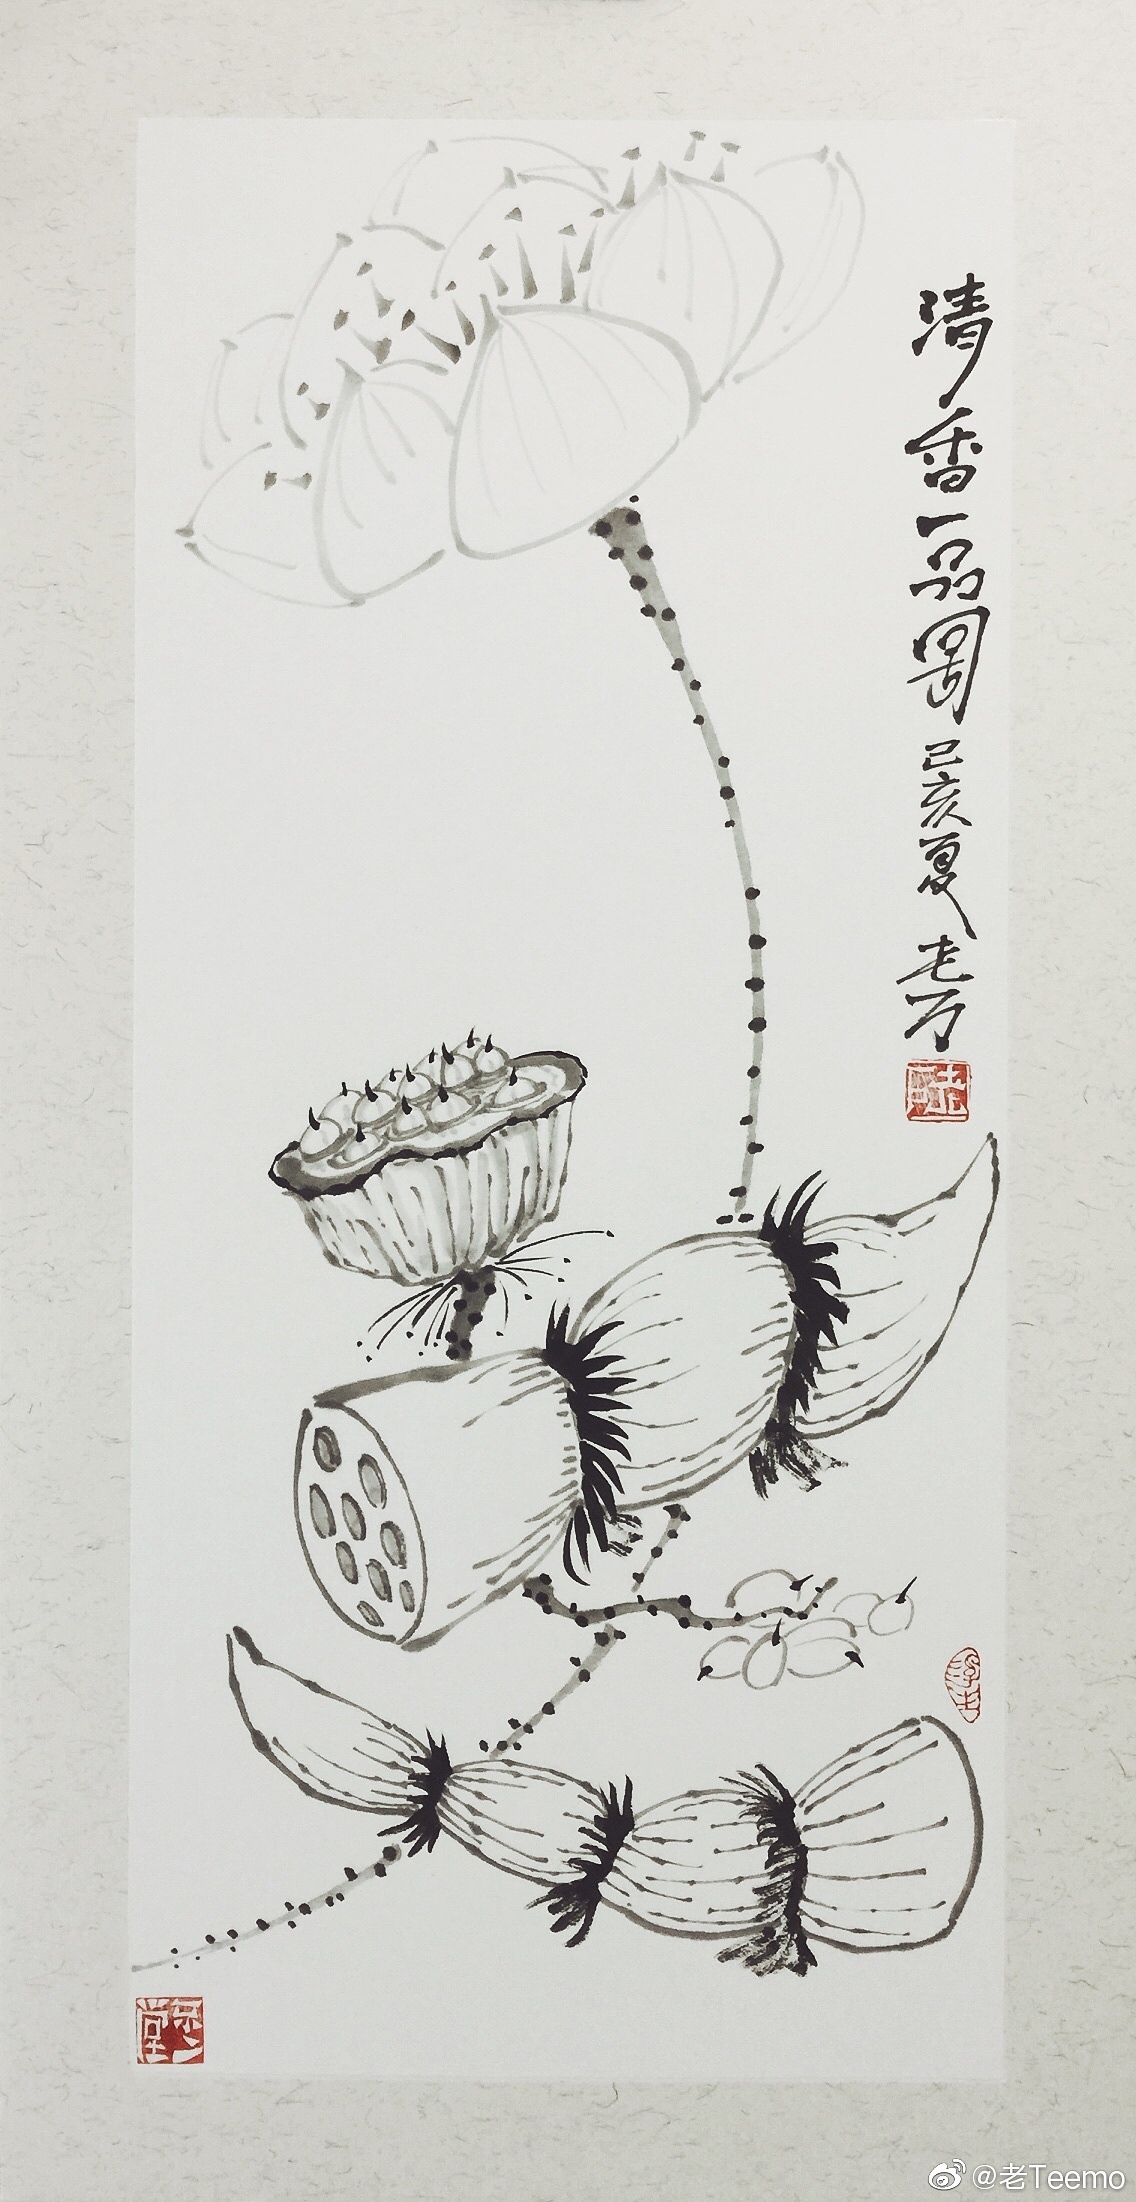 清香一品图 己亥夏 老万
@老Teemo